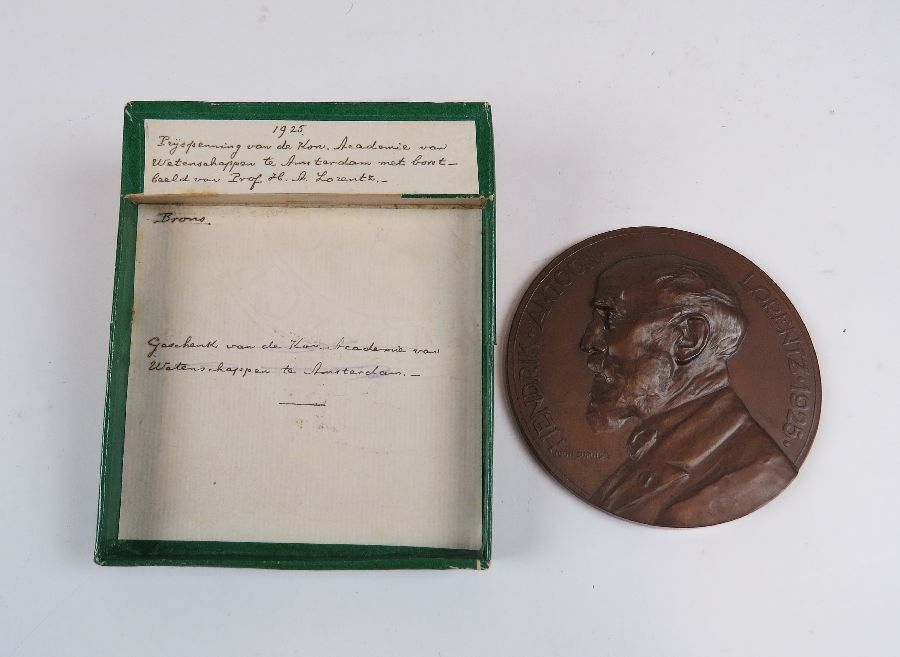 1925.
Prijspenning van de Kon. Academie van
Wetenschappen te Amsterdam met borst-
beeld van Prof. H. A. Lorentz.-
Brons.
Geschenk van de Kon. Academie van
Wetenschappen te Amsterdam.-
HENDRIK·ANTOON
LORENTZ·1925·